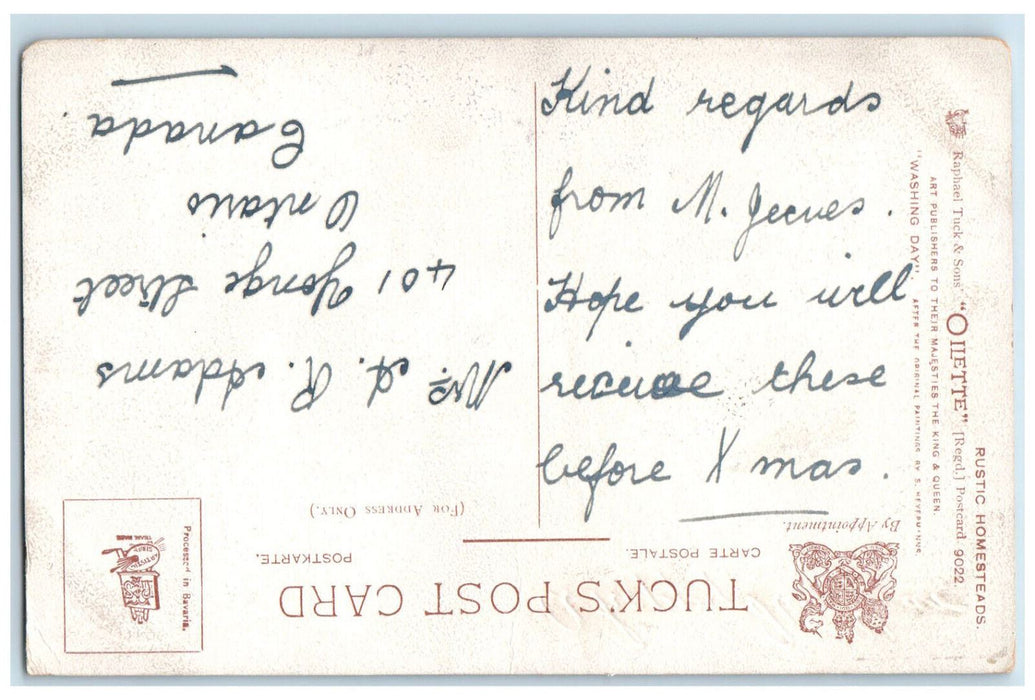 Kind regards
from M. Jeeves.
Hope you will
recieve these
before Xmas.
Mrs. A. R. Adams
401 Yonge Street
Ontario
Canada.
TUCK'S POST CARD
CARTE POSTALE.
POSTKARTE.
(FOR ADDRESS ONLY.)
By Appointment.
Processed in Bavaria.
RUSTIC HOMESTEADS.
Raphael Tuck & Sons' "OILETTE" [Regd.] Postcard 9022
ART PUBLISHERS TO THEIR MAJESTIES THE KING & QUEEN.
"WASHING DAY". AFTER THE ORIGINAL PAINTINGS BY S.